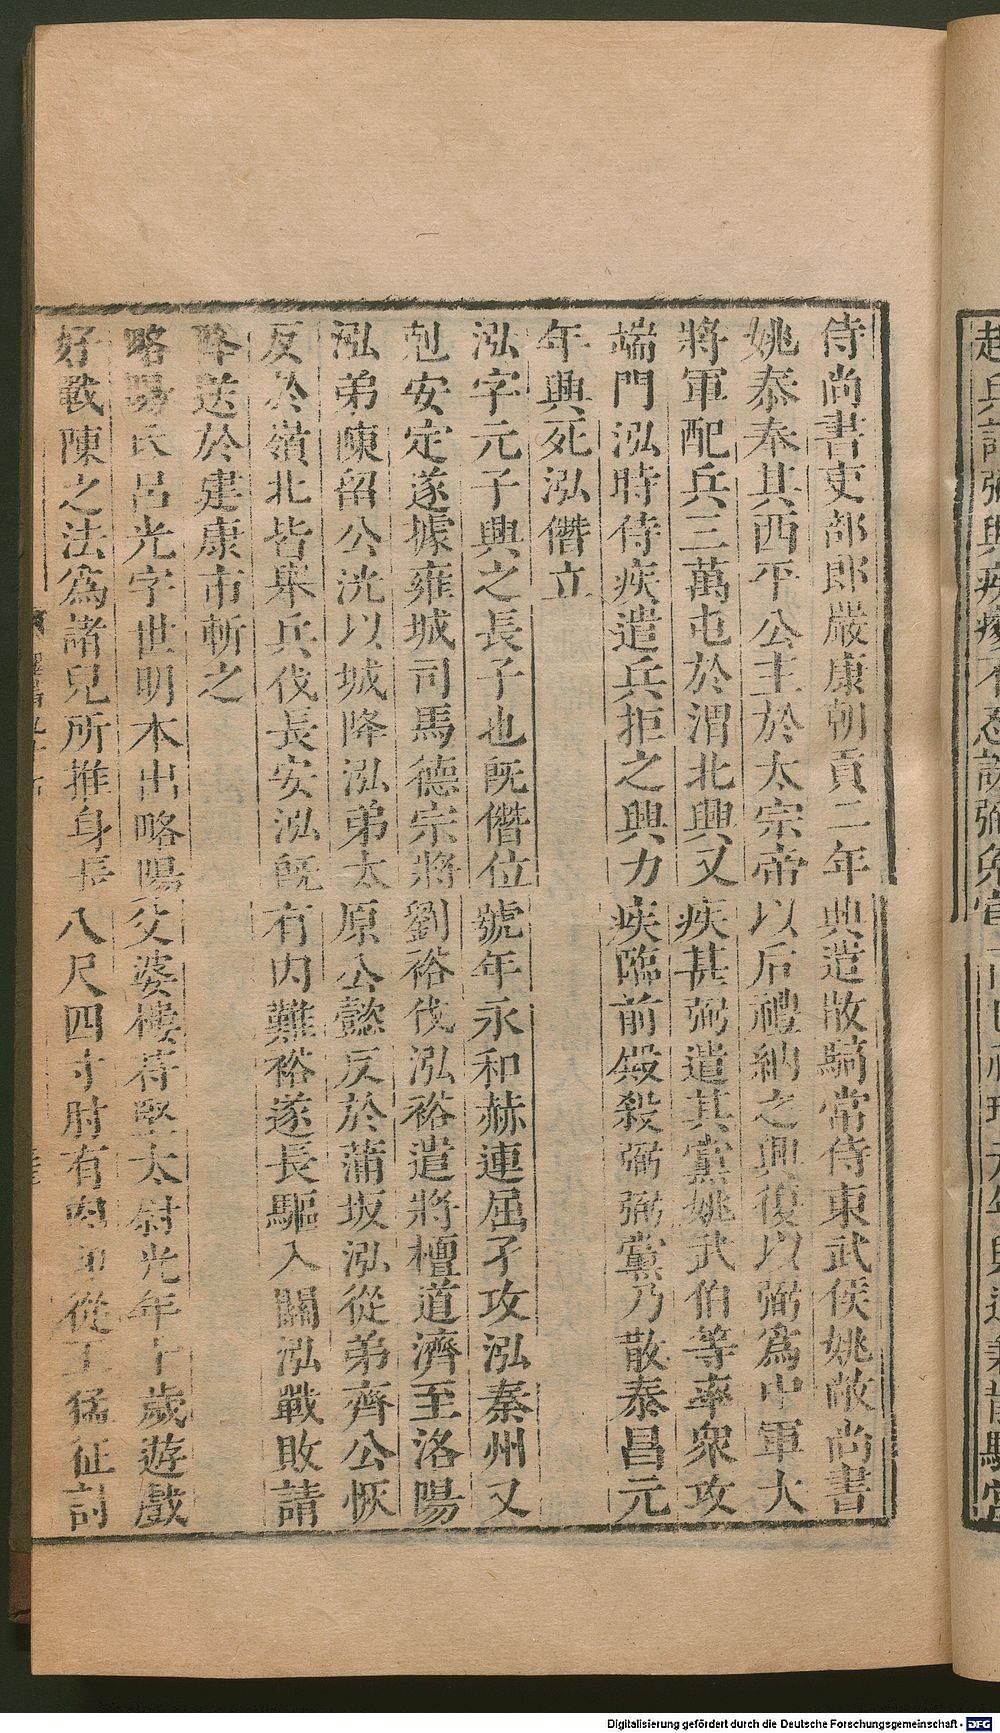 侍尚書吏部郎嚴康朝貢二年興遣散騎常侍東武侯姚敞尚書
姚泰奉其西平公主於太宗帝以后禮納之興復以弼爲中軍大
將軍配兵三萬屯於渭北興又疾甚弼遣其黨姚武伯等率衆攻
端門泓時侍疾遣兵拒之興力疾臨前殿殺弼弼黨乃散泰昌元
年興死泓僭立
泓字元子興之長子也旣僭位號年永和赫連屈孑攻泓秦州又
剋安定遂據雍城司馬德宗將劉裕伐泓裕遣將檀道濟至洛陽
泓弟陳留公洸以城降泓弟太原公懿反於蒲坂泓從弟齊公恢
反於嶺北皆舉兵伐長安泓旣有內難裕遂長驅入關泓戰敗請
降送於建康市斬之
略陽氐呂光字世明本出略陽父婆樓苻堅太尉光年十歲遊戲
好戰陳之法爲諸兒所推身長八尺四寸肘有肉印從王猛征討
Digitalisierung gefördert durch die Deutsche Forschungsgemeinschaft - DFG